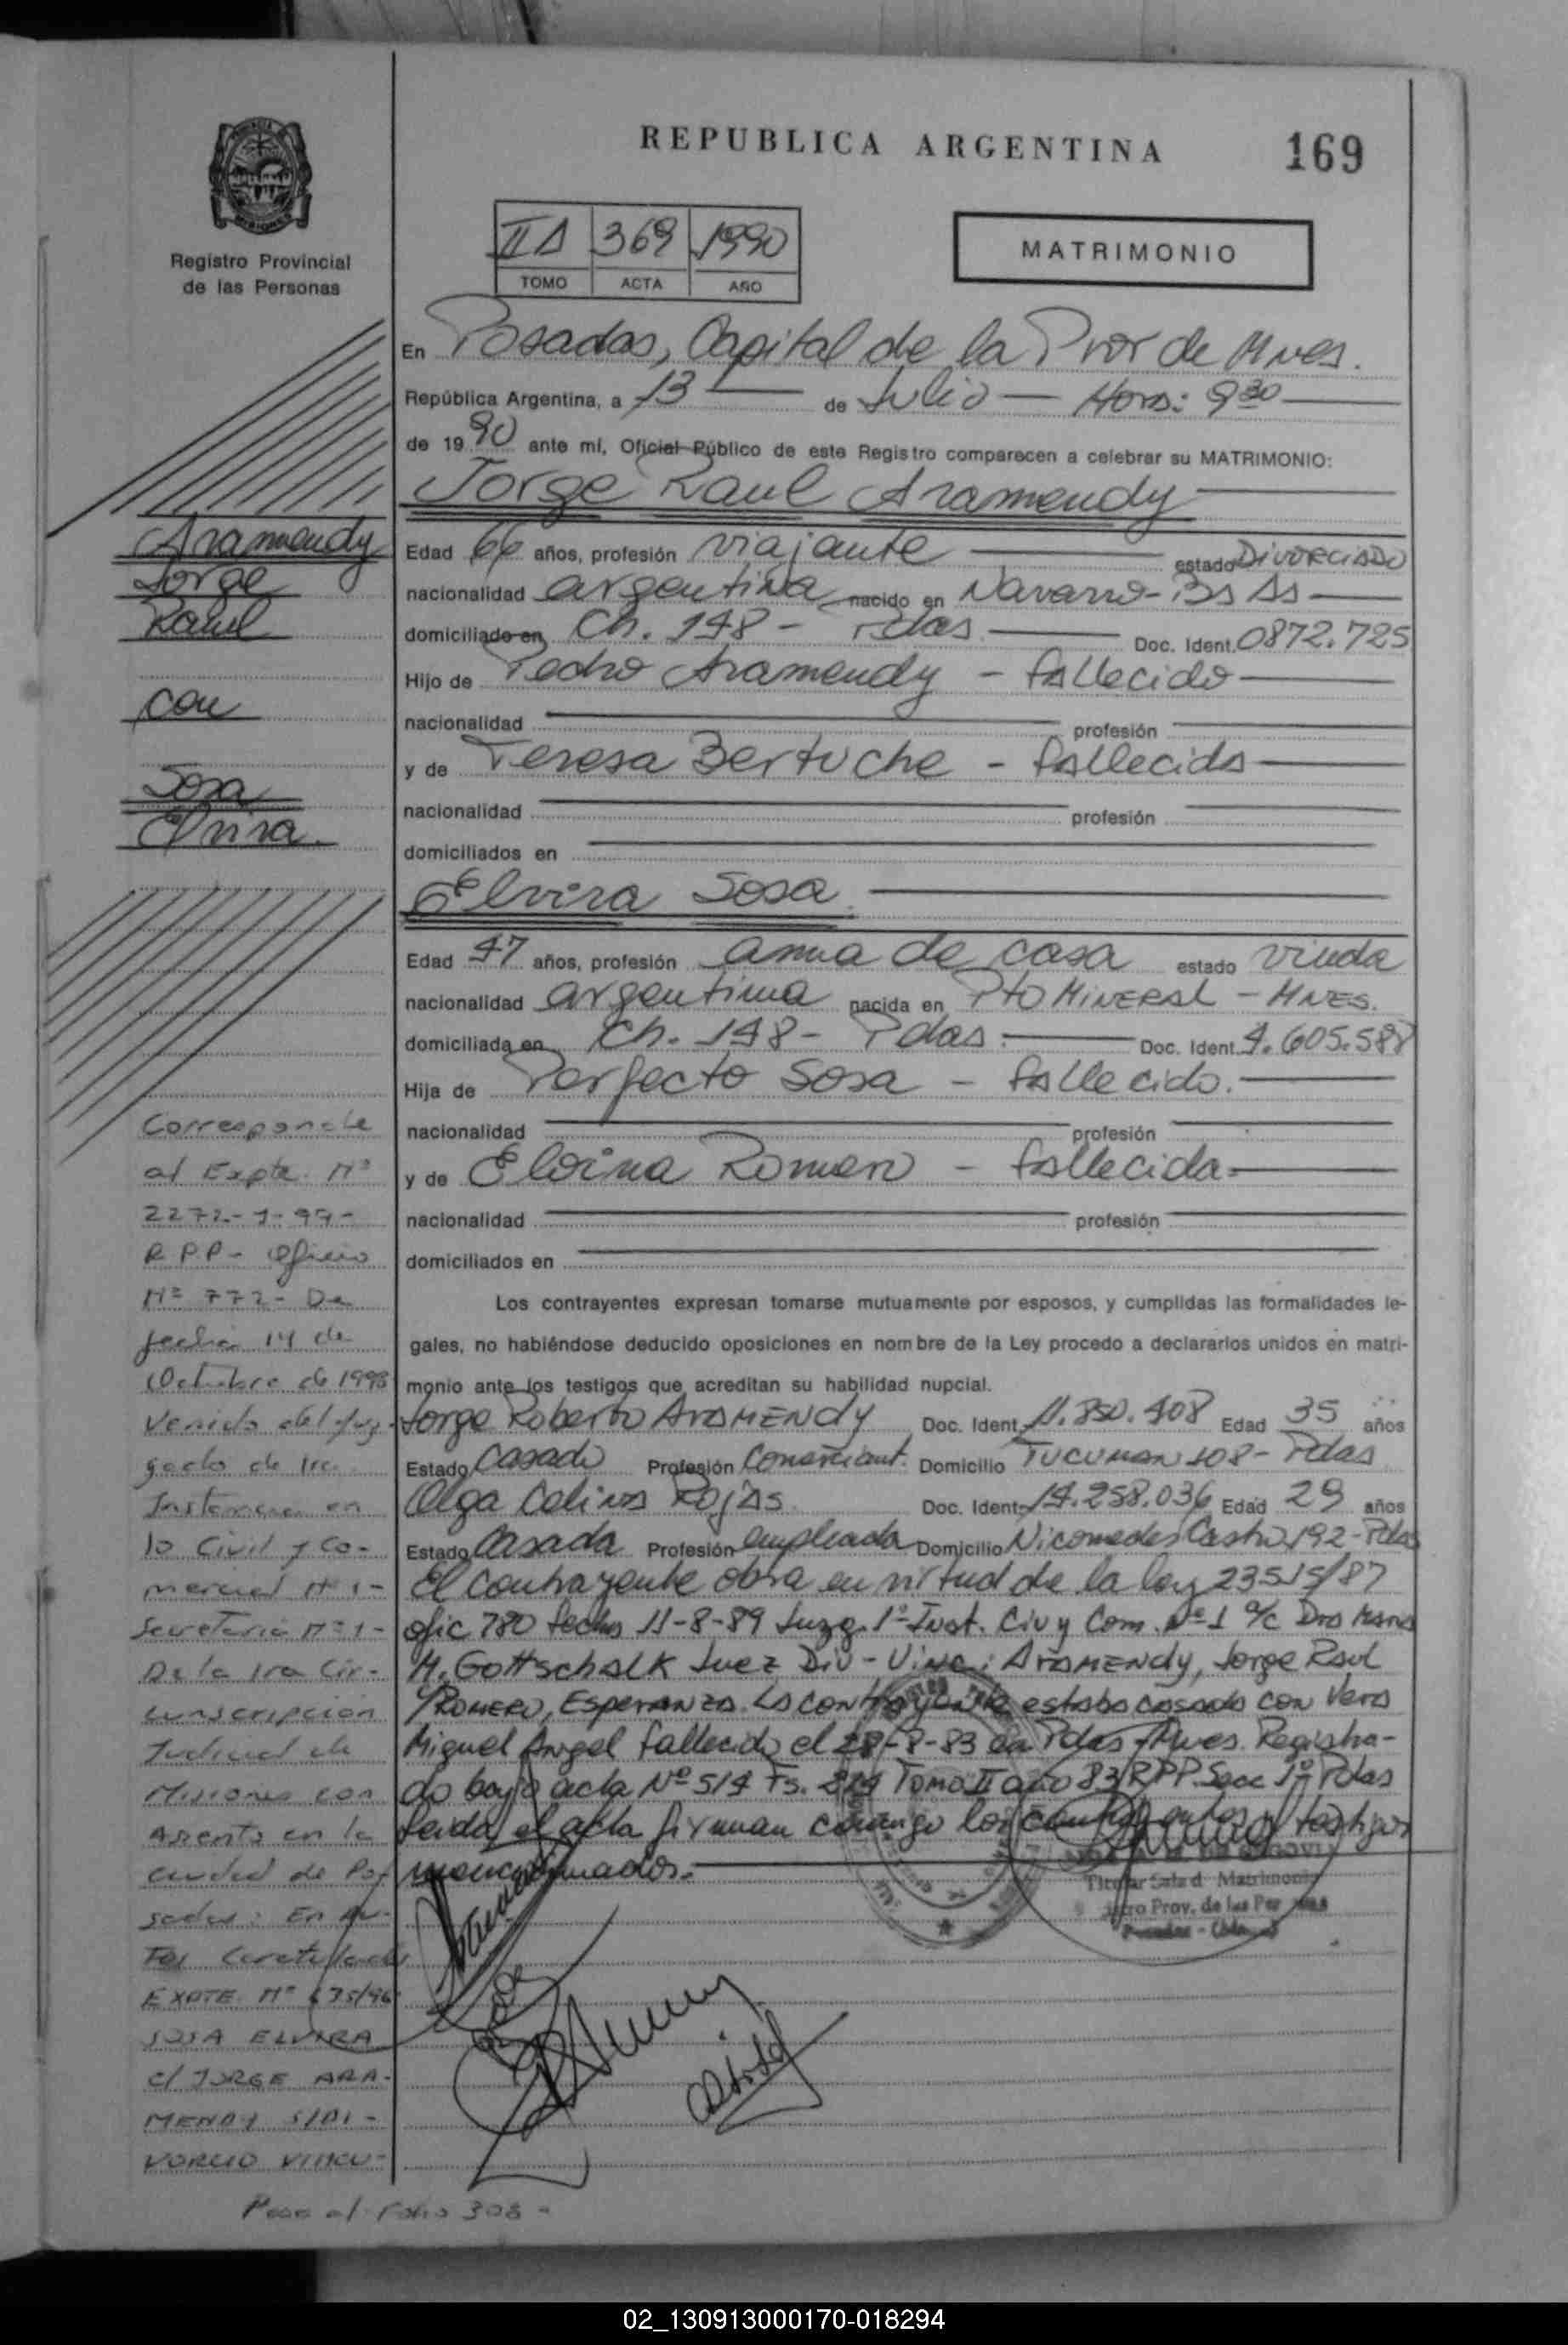 REPUBLICA ARGENTINA
169
Registro Provincial
de las Personas
II A 369 1990
TOMO ACTA AÑO
MATRIMONIO
En Posadas, Capital de la Prov de Mnes.
República Argentina, a 13 de Julio Hora: 9 30
de 19 90 ante mí, Oficial Público de este Registro comparecen a celebrar su MATRIMONIO:
Jorge Raul Aramendy
Edad 66 años, profesión viajante estado DIVORCIADO
nacionalidad argentina nacido en Navarro - Bs As
domiciliado en Ch. 148 - Pdas. Doc. Ident. 0872.725
Hijo de Pedro Aramendy - fallecido
nacionalidad profesión
y de Teresa Bertuche - fallecida
nacionalidad profesión
domiciliados en
Elvira Sosa
Edad 47 años, profesión ama de casa estado viuda
nacionalidad argentina nacida en Pto MINERAL - MNES.
domiciliada en Ch. 148 - Pdas. Doc. Ident. 4.605.588
Hija de Perfecto Sosa - fallecido.
nacionalidad profesión
y de Elvina Romero - fallecida
nacionalidad profesión
domiciliados en
Los contrayentes expresan tomarse mutuamente por esposos, y cumplidas las formalidades le-
gales, no habiéndose deducido oposiciones en nombre de la Ley procedo a declararlos unidos en matri-
monio ante los testigos que acreditan su habilidad nupcial.
Jorge Roberto ARAMENDY Doc. Ident. 11.850.408 Edad 35 años
Estado Casado Profesión Comerciant. Domicilio TUCUMAN 108 - Pdas
Olga Rojas Doc. Ident. 14.258.036 Edad 29 años
Estado Casada Profesión empleada Domicilio Nicomedes Castro 192 - Pdas
El contrayente obra en virtud de la ley 23515/87
ofic 780 fecha 11-8-89 Juzg. 1º Inst. Civ y Com. Nº 1 a/c Dra Maria
M. Gottschalk Juez Div - Vinc: ARAMENDY, Jorge Raul
y ROMERO, ESPERANZA. La contrayente estaba casada con Vera
Miguel Angel fallecido el 28-8-83 en Pdas - Mnes. Registra-
do bajo acta Nº 514 Fs. Tomo II año 83 RPP Secc 1ª Pdas
leida el acta firman conmigo los contrayentes y testigos
mencionados.
Titular Sala d Matrimonio
Prov. de las Per
Aramendy
Jorge
Raul
con
Sosa
Elvira.
Corresponde
al Expte. Nº
2272-1-99-
R.P.P- Oficio
Nº 772- De
fecha 14 de
Octubre de 1998
Venido del Juz-
gado de 1ra.
Instancia en
lo Civil y Co-
mercial Nº 1-
Secretaria Nº 1-
De la 1ra Cir-
cunscripción
Judicial de
Misiones con
Asiento en la
ciudad de Po-
sadas: En Au-
tos Caratulados
EXPTE. Nº 675/96
SOSA ELVIRA
C/ JORGE ARA-
MENDY S/DI-
VORCIO VINCU-
Pasa al folio 308 -
02_130913000170-018294